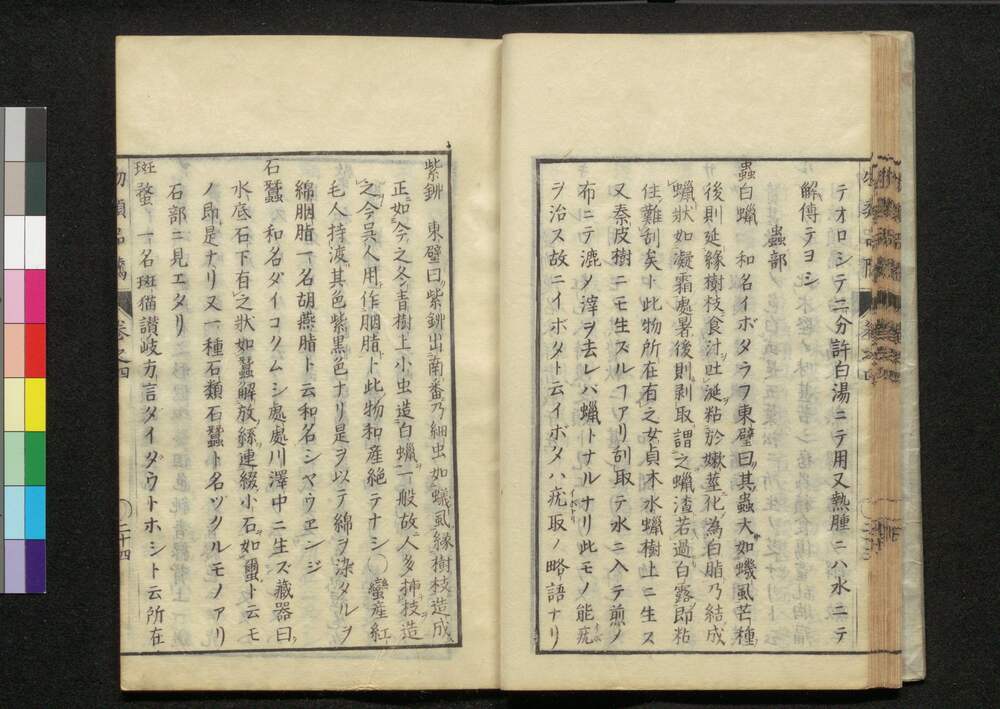 テオロシテ二分許白湯ニテ用又熱腫ニハ水ニテ
解傅テヨシ
蟲部
蟲白蠟 和名イボタラフ東璧曰其蟲大如蟣虱芒種
後則延緣樹枝食汁吐涎粘於嫩莖化為白脂乃結成
蠟狀如凝霜處暑後則剥取謂之蠟渣若過白露即粘
住難刮矣ト此物所在有之女貞木水蠟樹上ニ生ス
又秦皮樹ニモ生スルヿアリ刮取テ水ニ入テ煎ノ
布ニテ漉ノ滓ヲ去レバ蠟トナルナリ此モノ能疣
ヲ治ス故ニイボタト云イボタハ疣取ノ略語ナリ
紫鉚 東璧曰紫鉚出南番乃細虫如蟻虱緣樹枝造成
正如今之冬青樹上小虫造白蠟一般故人多挿枝造
之今吳人用作胭脂ト此物和産絶テナシ○蠻産紅
毛人持渡其色紫黒色ナリ是ヲ以テ綿ヲ染タルヲ
綿胭脂一名胡燕脂ト云和名シヤウエンジ
石蠶 和名ダイコクムシ處處川澤中ニ生ズ藏器曰
水底石下有之狀如蠶解放絲連綴小石如蠒ト云モ
ノ即是ナリ又一種石類石蠶ト名ヅクルモノアリ
石部ニ見エタリ
斑蝥 一名斑猫讃岐方言ダイダウトホシト云所在
物類品隲 卷之四 二十四